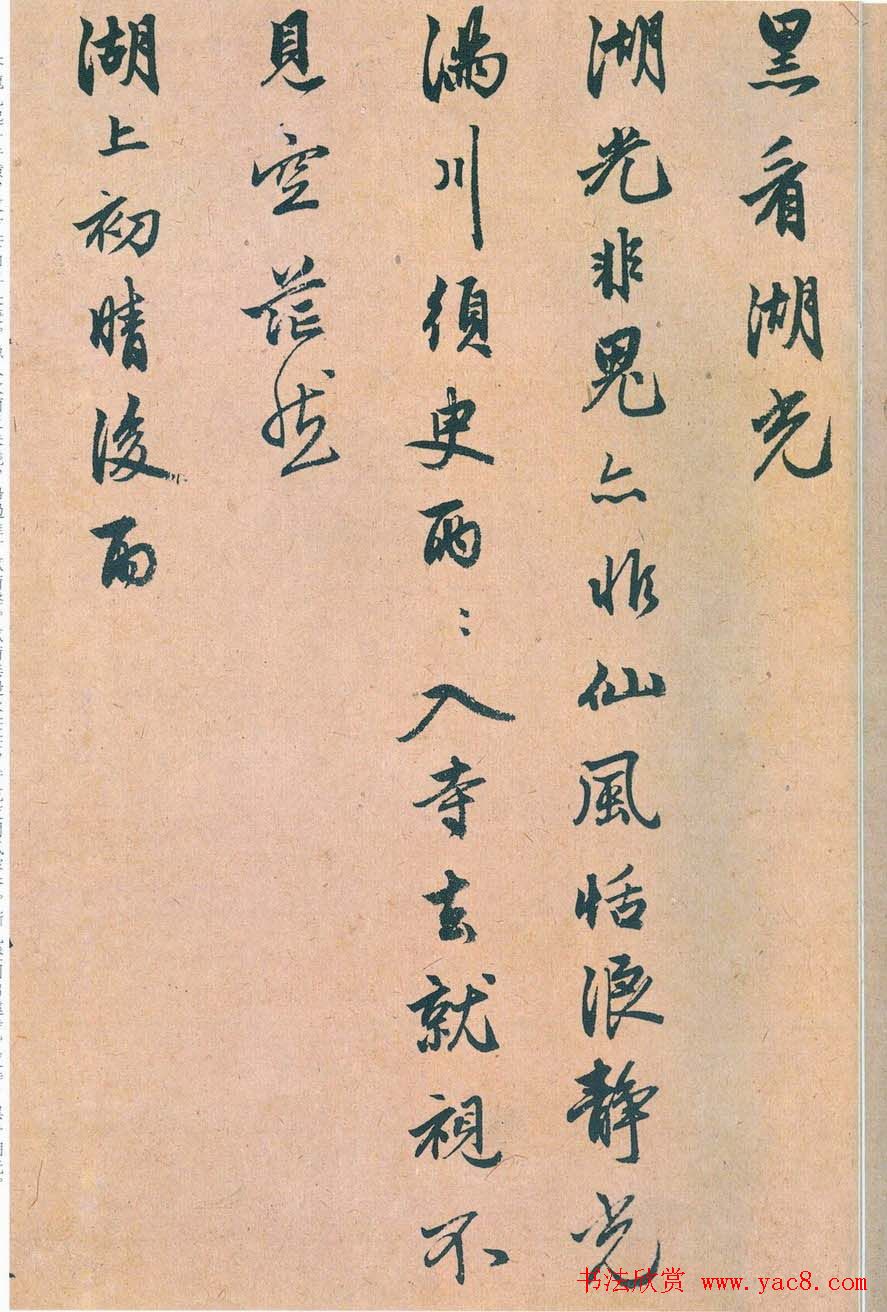 黑看湖光
湖光非鬼亦非仙風恬浪靜光
滿川須臾兩〻入寺去就視不
見空茫然
湖上初晴後雨
书法欣赏 www.yac8.com